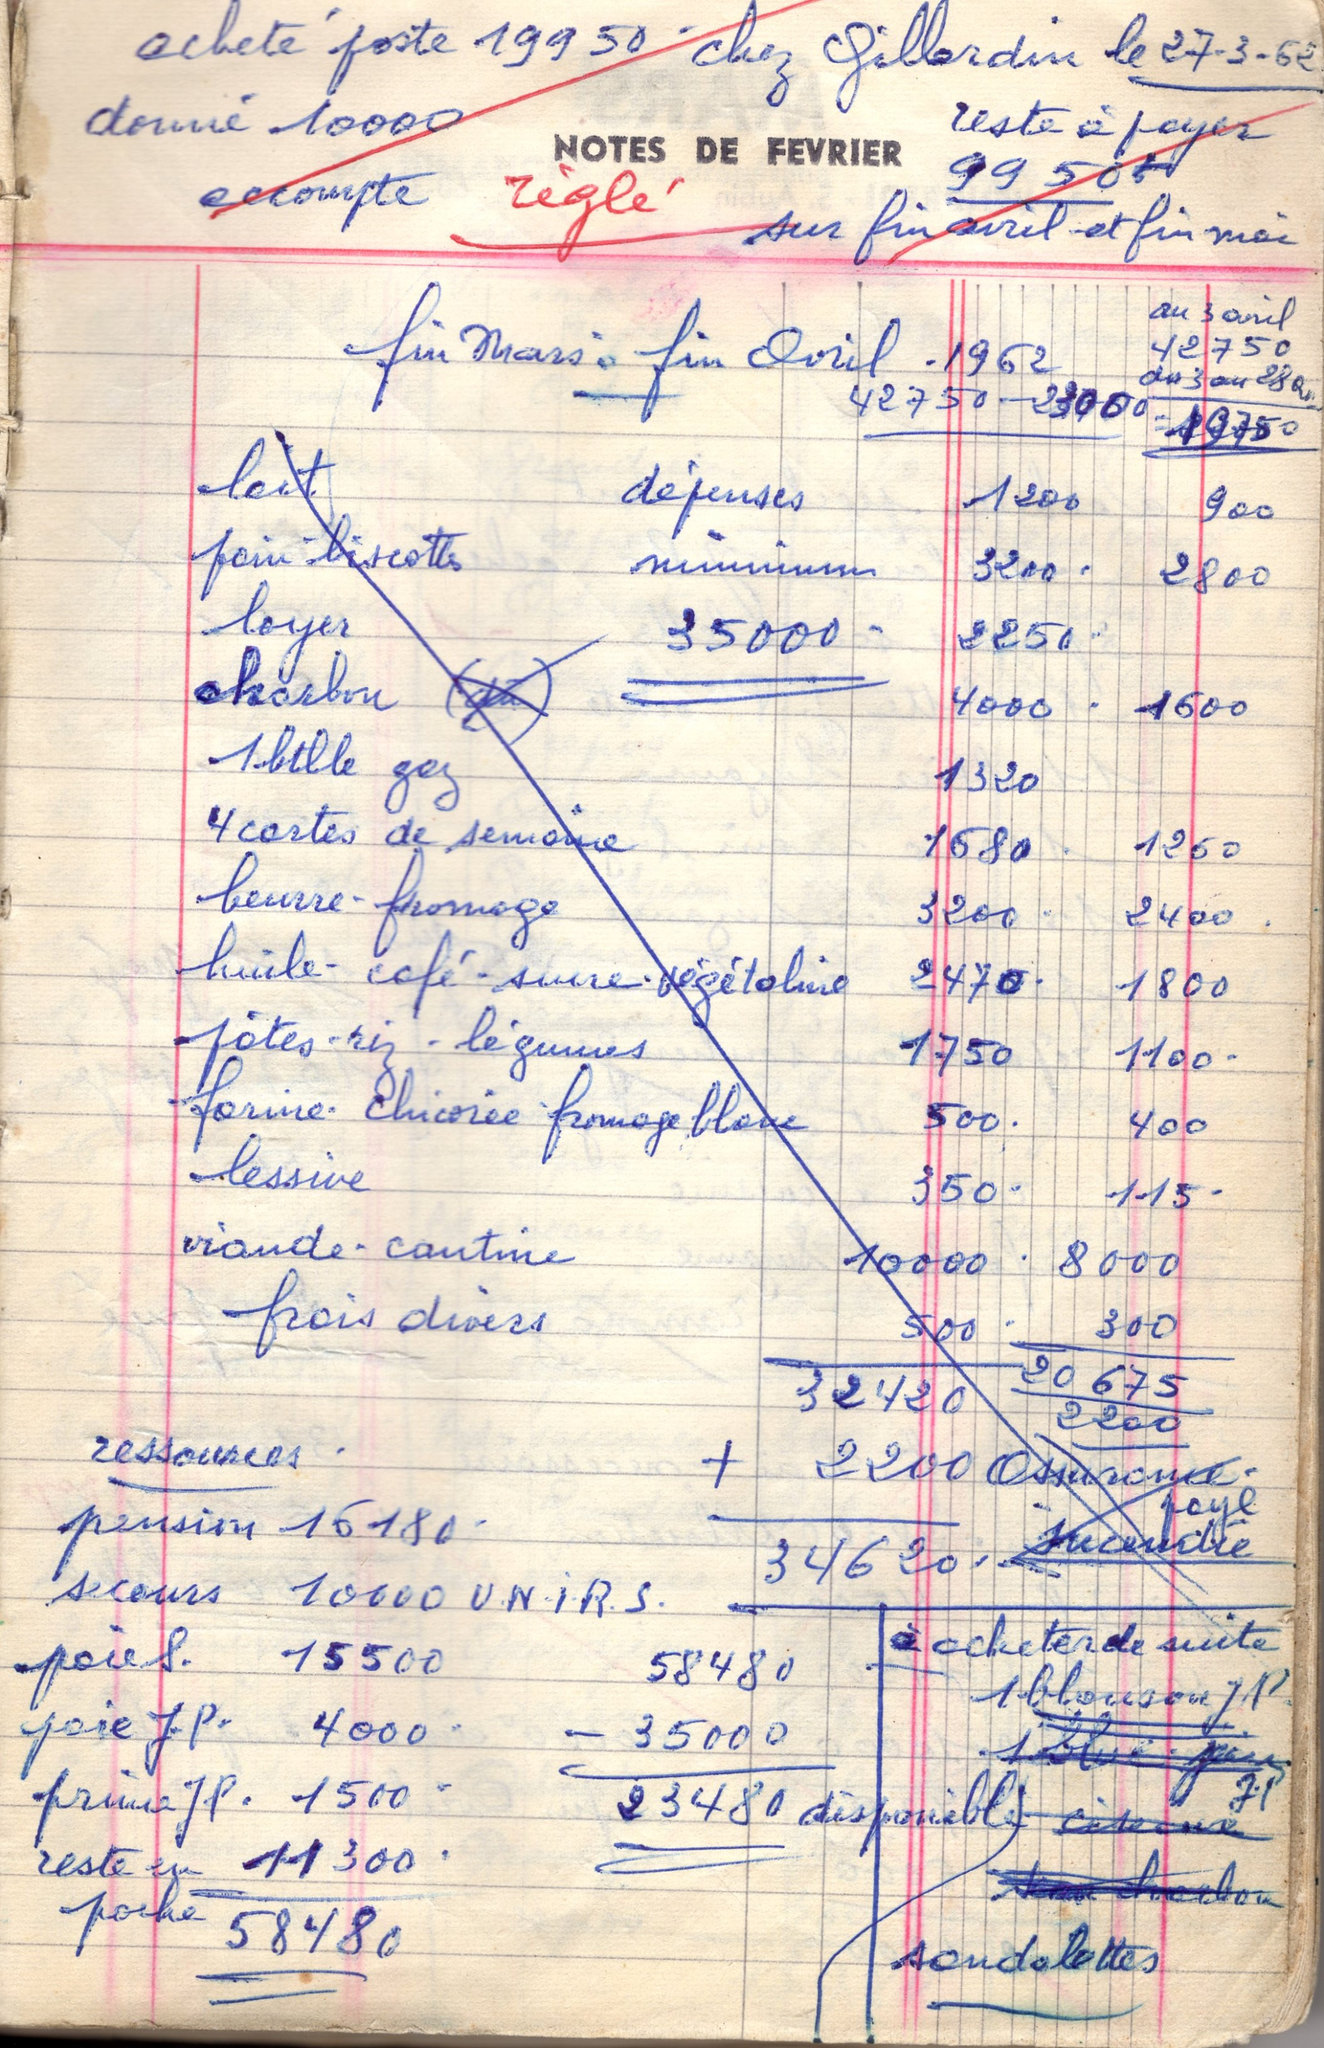 acheté poste 19950 chez Gillardin le 27-3-62
donné 10000 reste à payer
NOTES DE FEVRIER
accompte réglé 9950
sur fin avril et fin mai
fin Mars à fin Avril .1962
au 3 avril
42750
du 3 au 28
42750 - 23000 = 19750
lait dépenses 1200 900
pain-biscottes minimum 3200. 2800
loyer 35000- 2250.
charbon 4000. 1600
1 btlle gaz 1320
4 cartes de semaine 1680. 1260
beurre-fromage 3200. 2400.
huile-café-sucre-végétaline 2470. 1800
pâtes-riz-légumes 1750 1100-
farine-chicorée-fromage blanc 500. 400
lessive 350. 115-
viande-cantine 10000. 8000
frais divers 500. 300
32420 20675
2200
ressources. + 2200 Assurance-
payé
pension 16180. 34620. incendie
secours 10000 U.N.I.R.S.
à acheter de suite
paie S. 15500 58480
1 blouson J.P.
paie J.P. 4000. - 35000
1 blue-jean
JP
prime J.P. 1500- 23480 disponible ciseaux
reste en 11300.
charbon
poche 58480
sandalettes